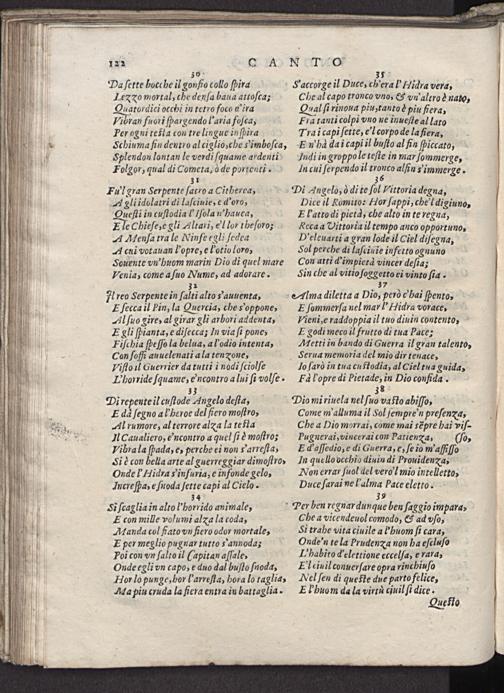 122
CANTO
30
Da sette bocche il gonfio collo spira
Lezzo mortal, che densa baua attosca;
Quatordici occhi in tetro foco d'ira
Vibran fuori spargendo l'aria fosca,
Per ogni testa con tre lingue inspira
Schiuma fin dentro al ciglio, che s'imbosca,
Splendon lontan le verdi squame ardenti
Folgor, qual di Cometa, ò de portenti.
31
Fu'l gran Serpente sacro a Citherea,
A gli idolatri di lasciuie, e d'oro,
Questi in custodia l'Isola n'hauea,
E le Chiese, e gli Altari, e'l lor thesoro;
A Mensa tra le Ninfe egli sedea
A cui votauan l'opre, e l'otio loro,
Souente vn'huom marin Dio di quel mare
Venia, come a suo Nume, ad adorare.
32
Il reo Serpente in salti alto s'auuenta,
E secca il Pin, la Quercia, che s'oppone,
Al suo gire, al girar gli arbori addenta,
E gli spianta, e disecca; In via si pone,
Fischia spesso la belua, a l'odio intenta,
Con soffi auuelenati a la tenzone,
Visto il Guerrier da tutti i nodi sciolse
L'horride squame, e'ncontro a lui si volse.
33
Di repente il custode Angelo desta,
E dà segno a l'heroe del fiero mostro,
Al rumore, al terrore alza la testa
Il Caualiero, e'ncontro a quel si è mostro;
Vibra la spada, e, perche ei non s'arresta,
Si è con bella arte al guerreggiar dimostro,
Onde l'Hidra s'infuria, e infonde gelo,
Increspa, e snoda sette capi al Cielo.
34
Si scaglia in alto l'horrido animale,
E con mille volumi alza la coda,
Manda col fiato vn fiero odor mortale,
E per meglio pugnar tutto s'annoda;
Poi con vn salto il Capitan assale,
Onde egli vn capo, e duo dal busto snoda,
Hor lo punge, hor l'arresta, hora lo taglia,
Ma piu cruda la fiera entra in battaglia.
35
S'accorge il Duce, ch'era l'Hidra vera,
Che al capo tronco vno, & vn'altro è nato,
Qual si rinoua piu, tanto è piu fiera,
Fra tanti colpi vno ne inueste al lato
Tra i capi sette, e'l corpo de la fiera,
E n'hà da i capi il busto al fin spiccato,
Indi in groppo le teste in mar sommerge,
In cui serpendo il tronco alfin s'immerge.
36
Di Angelo, ò di te sol Vittoria degna,
Dice il Romito: Hor sappi, che'l digiuno,
E l'atto di pietà, che alto in te regna,
Reca a Vittoria il tempo anco opportuno,
D'eleuarti a gran lode il Ciel disegna,
Sol perche di lasciuie infetto ognuno
Con atti d'impietà vincer desia;
Sin che al vitio soggetto ei vinto sia.
37
Alma diletta a Dio, però c'hai spento,
E sommersa nel mar l'Hidra vorace,
Vieni, e raddoppia il tuo diuin contento,
E godi meco il frutto di tua Pace;
Metti in bando di Guerra il gran talento,
Serua memoria del mio dir tenace,
Io sarò in tua custodia, al Ciel tua guida,
Fà l'opre di Pietade, in Dio confida.
38
Dio mi riuela nel suo vasto abisso,
Come m'alluma il Sol sempre'n presenza,
Che a Dio morrai, come mai sẽpre hai vis-
Pugnerai, vincerai con Patienza, (so,
E d'assedio, e di Guerra, e, se io m'affisso
In quello occhio diuin di Prouidenza,
Non errar suol del vero'l mio intelletto,
Duce sarai ne l'alma Pace eletto.
39
Per ben regnar dunque ben saggio impara,
Che a vicendeuol comodo, & ad vso,
Si trahe vita ciuile a l'huom sì cara,
Onde'n te la Prudenza non ha escluso
L'habito d'elettione eccelsa, e rara,
E'l ciuil conuersare opra rinchiuso
Nel sen di queste due parto felice,
E l'huom da la virtù ciuil si dice.
Questo